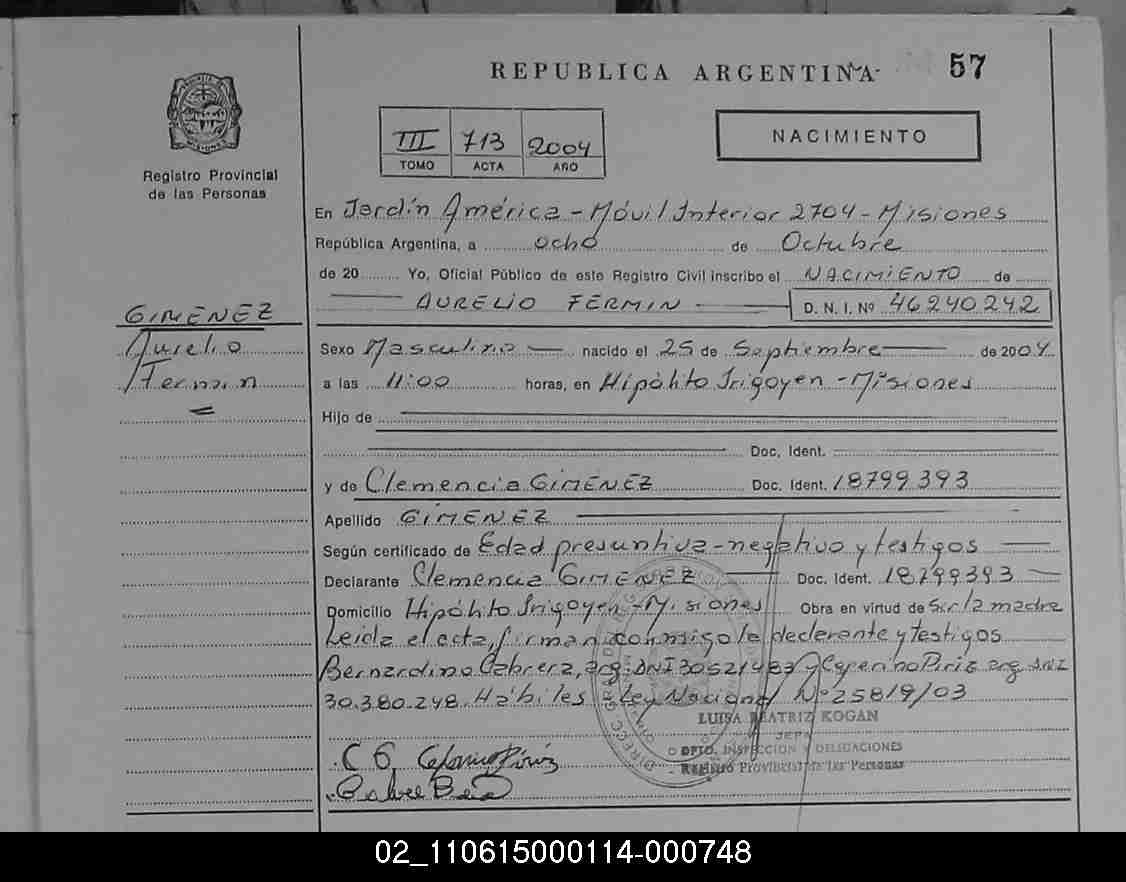 REPUBLICA ARGENTINA
57
MISIONES
Registro Provincial
de las Personas
III 713 2004
TOMO ACTA AÑO
NACIMIENTO
En Jardín América - Móvil Interior 2704 - Misiones
República Argentina, a ocho de Octubre
de 20 Yo, Oficial Público de este Registro Civil inscribo el NACIMIENTO de
AURELIO FERMIN D. N. I. Nº 46240242
GIMENEZ
Aurelio
Fermin
Sexo Masculino nacido el 25 de Septiembre de 2004
a las 11:00 horas, en Hipólito Irigoyen - Misiones
Hijo de
Doc. Ident.
y de Clemencia GIMENEZ Doc. Ident. 18799393
Apellido GIMENEZ
Según certificado de Edad presuntiva - negativo y testigos
Declarante Clemencia GIMENEZ Doc. Ident. 18799393
Domicilio Hipólito Irigoyen - Misiones Obra en virtud de Ser la madre
Leida el acta, firman conmigo la declarante y testigos
Bernardino Cabrera, arg. DNI 30521483 y Ceperino Piriz arg. DNI
30.380.248. Hábiles. Ley Nacional Nº 25819/03
LUISA BEATRIZ KOGAN
JEFA
DPTO. INSPECCION Y DELEGACIONES
Registro Provincial de las Personas
C G
02_110615000114-000748